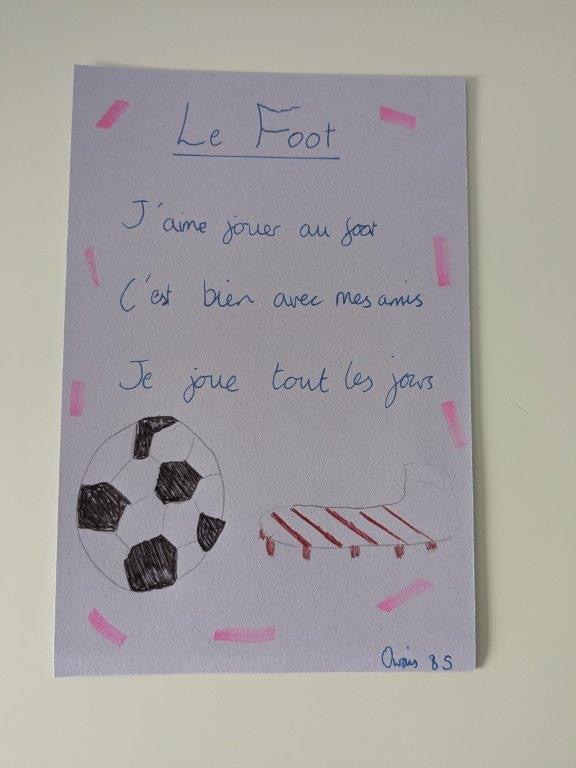 Le Foot
J'aime jouer au foot
C'est bien avec mes amis
Je joue tout les jours
Owais 8S